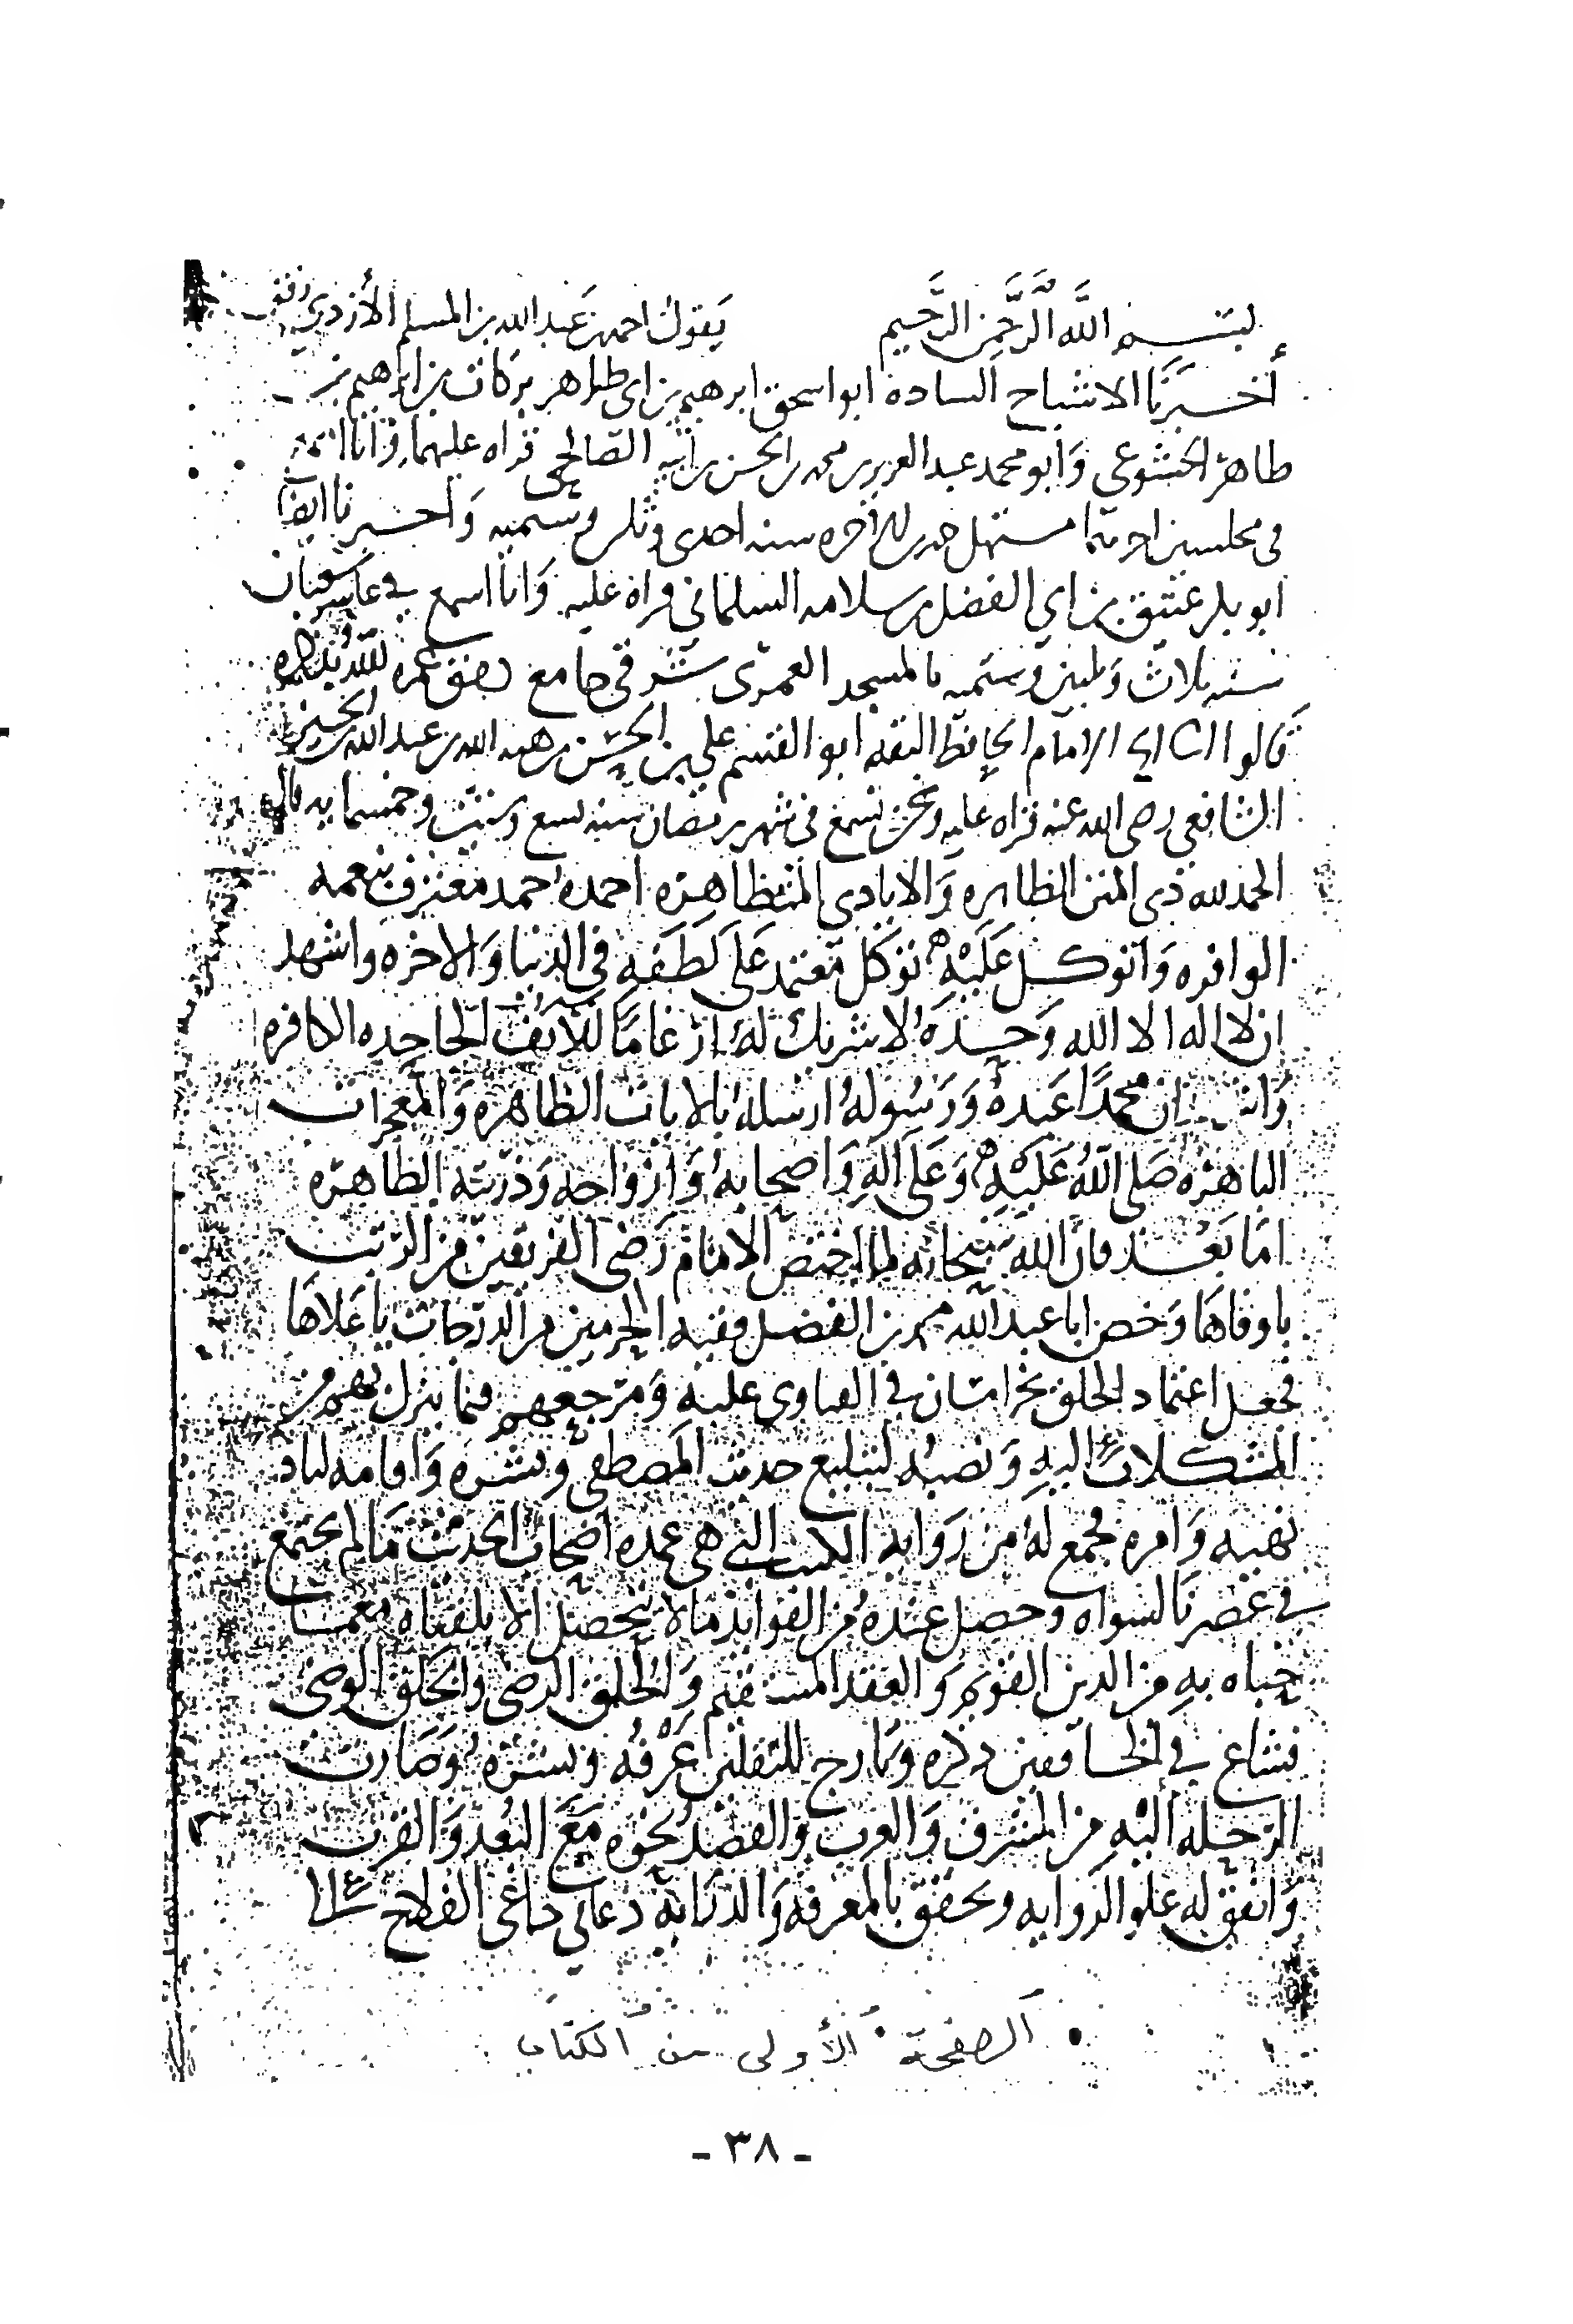 بسم الله الرَّحمن الرَّحيم يَقول احمد بن عَبد الله بن المسلم الأزدي
أخبرَنَا الاشياح السادة ابو اسحق ابرهيم بن ابي طاهر بركات بن ابراهيم بن
طاهر الخشوعي وَابو محمد عبد العزيز بن محمد بن الحسن بن الصالحي قراه عليهما وَانا اسمع
في مجلسين اخرهما مستهل جمدى الاخره سنه احدى وثلثين وستميه وَاخبرنا ايضا
ابو بكر عتيق بن ابي الفضل بن سلامه السلماني قراه عليه وَانا اسمع في عاشر شعبان
سنه ثلاث وَثلثين وستميه بالمسجد العمرى شرقي جامع دمشق عمره الله بذكره
قالوا انا الامام الحافظ الثقه ابو القسم علي بن الحسن بن هبه الله بن عبد الله بن الحسين
الشافعي رضى الله عنه قراه عليه ونحن نسمع في شهر رمضان سنه تسع وستين وخمسمايه قال
الحمد لله ذى المنن الظاهره وَالايادي المتظاهرَه احمده حمد معترف بنعمه
الوافره وَاتوكل عَلَيْهِ توَكل معتمد عَلىَ لَطَفه في الدنيا وَالاخره واشهد
ان لا اله الا الله وَحدَهُ لا شريك لهُ ارغامًا للانف الجاحده الكافره
وَاشهد ان محمدًا عَبدهُ وَرَسُولهُ ارسلهُ بالايات الظاهره وَالمعجزات
الباهرَه صَلى اللهُ عَليْهِ وَعَلى الهِ وَاصحابهُ وَازوَاجه وَذرّيته الطاهرَه
امَا بَعْد فان الله سبحانه لما اختص الامام رَضى الفريقين من الرتب
باوفاهَا وَخص ابا عبد الله محمد بن الفضل فقيه الحرمين من الدرَجات باعَلاهَا
فجعل اعتماد الخلق بخراسان في الفتاوي عليه وَمَرجعهم فيما ينزل بهم من
المشكلات اليهِ وَنصبهُ لتبليغ حديث المصطفى ونشره وَاقامه لبيان
نهيه وَامره فجمع لهُ من رَوايه الكتب التي هي عمده اصحاب الحديث مَا لم يجتمع
في عَصرنَا لسواه وحصل عندهُ من الفوايد مَا لا يتحصل الا بلقياه مع مَا
حَباه بهِ من الدين القويم وَالعقد المستقيم وَالخلق الرضى وَالخلق الوضى
فشاع في الخافقين ذكره وتارج للثقلين عَرْفُه وَنشرَه وَصَارت
الرحله اليْهِ من المشرق وَالغرب وَالقصد نحوَه مَعَ البُعد وَالقرب
وَاتفق له علو الروايه وتحقق بالمعرفه وَالدرَايه دعاني داعي الفلاح
• الصفحة الأولى من الكتاب
- ٣٨ -